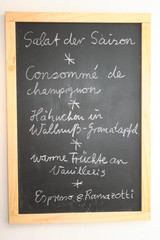 Salat der Saison
*
Consommé de
champignon
*
Hähnchen in
Wallnuß-Granatapfel
*
warme Früchte an
Vanilleeis
*
Espresso & Ramazotti